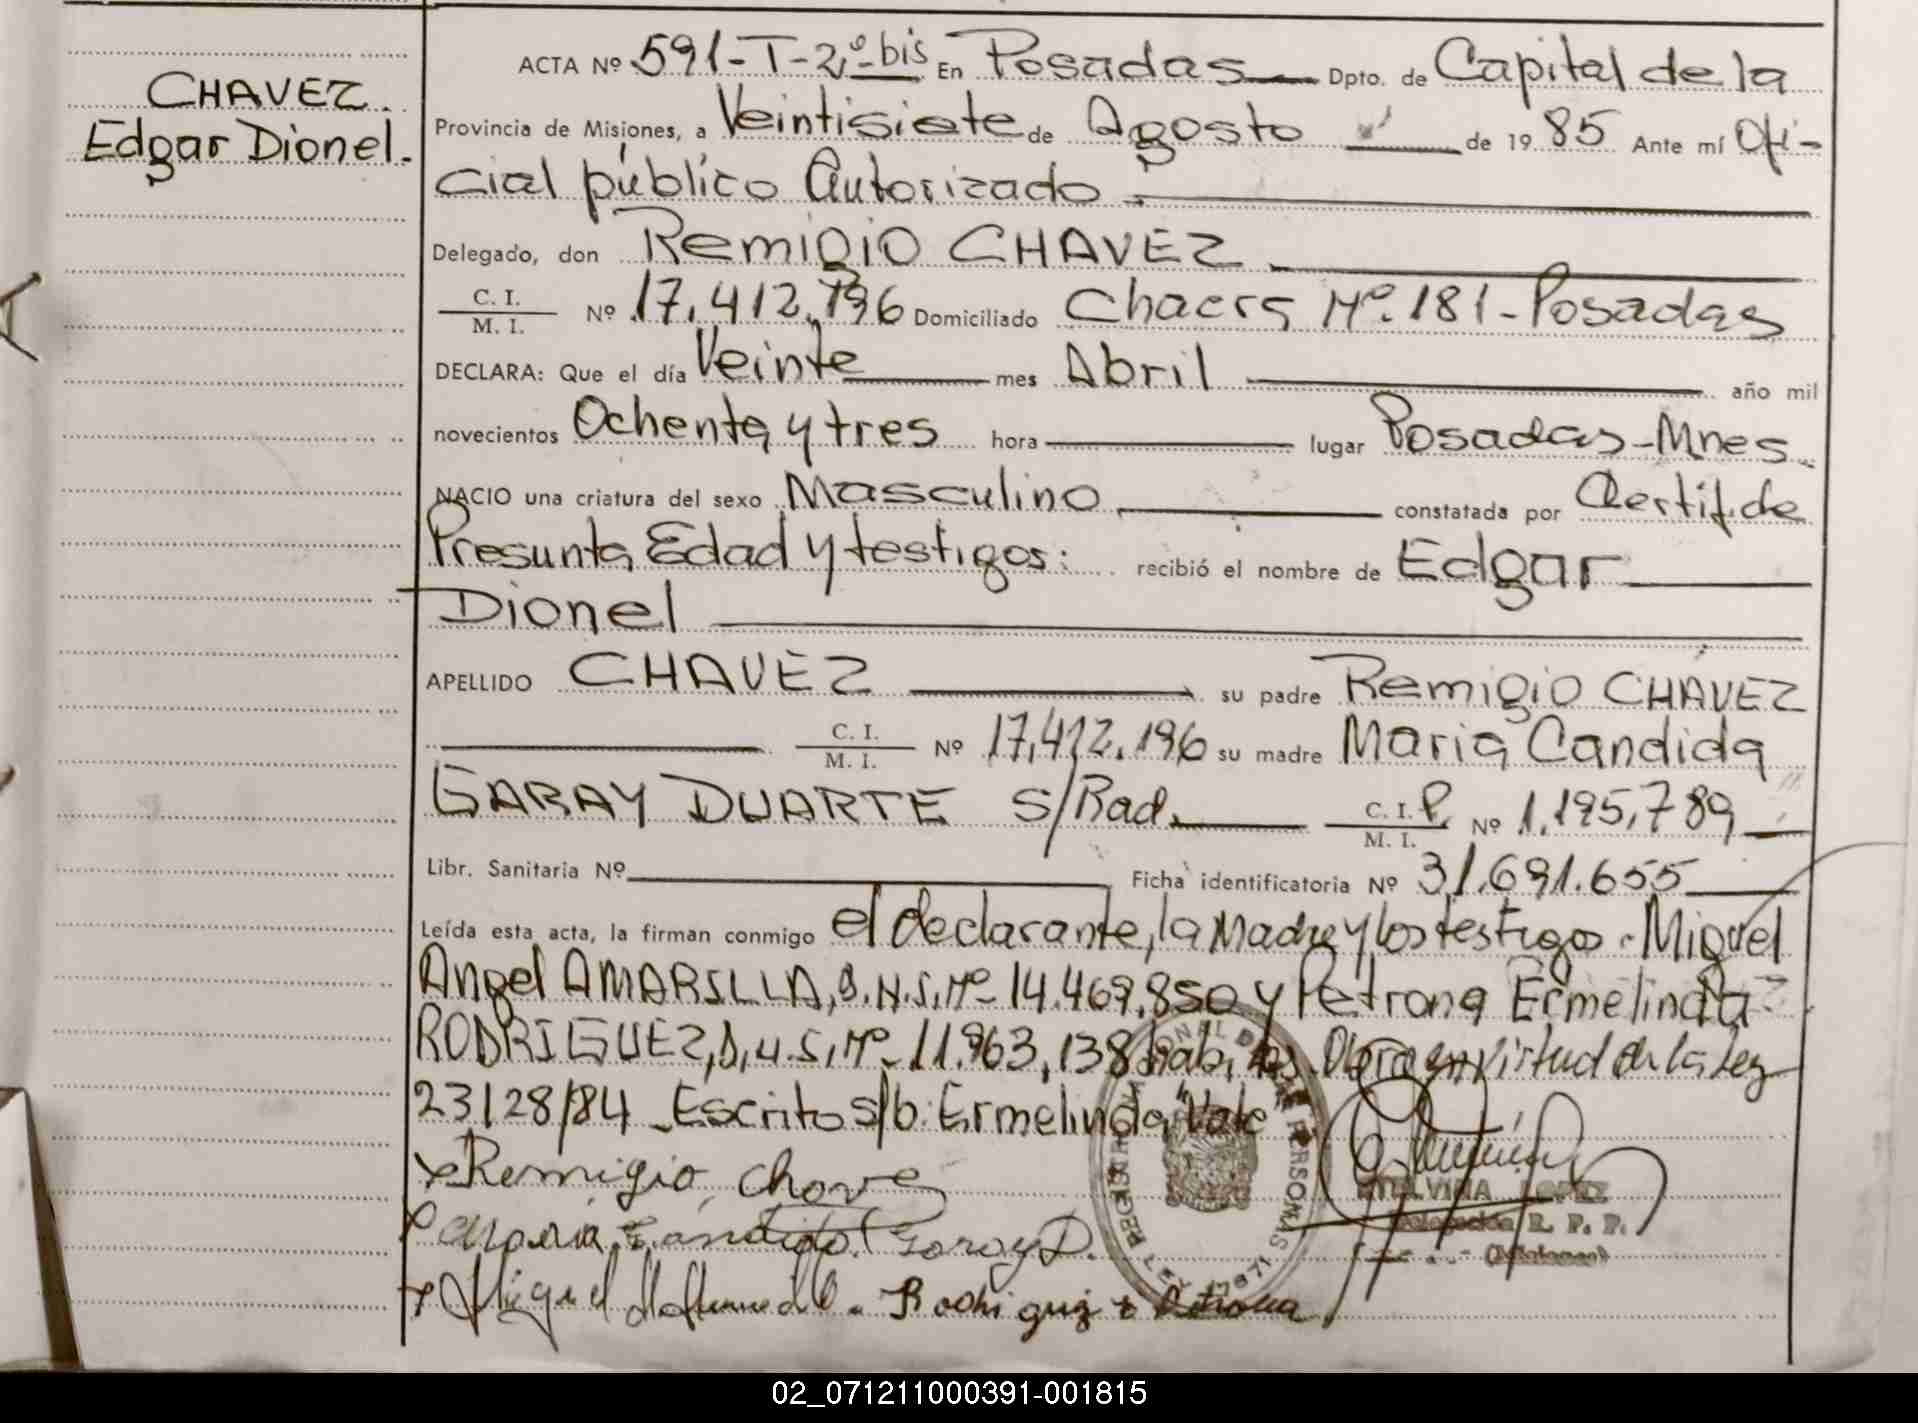 CHAVEZ
Edgar Dionel.
ACTA Nº 591-T-2º-bis En Posadas Dpto. de Capital de la
Provincia de Misiones, a Veintisiete de Agosto de 1985 Ante mí Ofi-
cial público Autorizado
Delegado, don Remigio CHAVEZ
C. I. / M. I. Nº 17.412.196 Domiciliado Chacra Nº. 181-Posadas
DECLARA: Que el día Veinte mes Abril año mil
novecientos Ochenta y tres hora lugar Posadas-Mnes
NACIO una criatura del sexo Masculino constatada por Certif. de
Presunta Edad y testigos: recibió el nombre de Edgar
Dionel
APELLIDO CHAVEZ su padre Remigio CHAVEZ
C. I. / M. I. Nº 17.412.196 su madre Maria Candida
GARAY DUARTE s/Rad. C. I. P. / M. I. Nº 1.195.789
Libr. Sanitaria Nº Ficha identificatoria Nº 31.691.655
Leída esta acta, la firman conmigo el declarante, la Madre y los testigos. Miguel
Angel AMARILLA, D.N.I. Nº 14.469.850 y Petrona Ermelinda
RODRIGUEZ, D.N.I. Nº 11.963.138 hab. Obra en virtud de la Ley
23128/84 _Escrito s/b: Ermelinda Vale
Remigio Chavez
Maria Candida Garay D.
Miguel Rodriguez Petrona
REGISTRO PERSONAS LEY
LOPEZ
R. P. P.
02_071211000391-001815